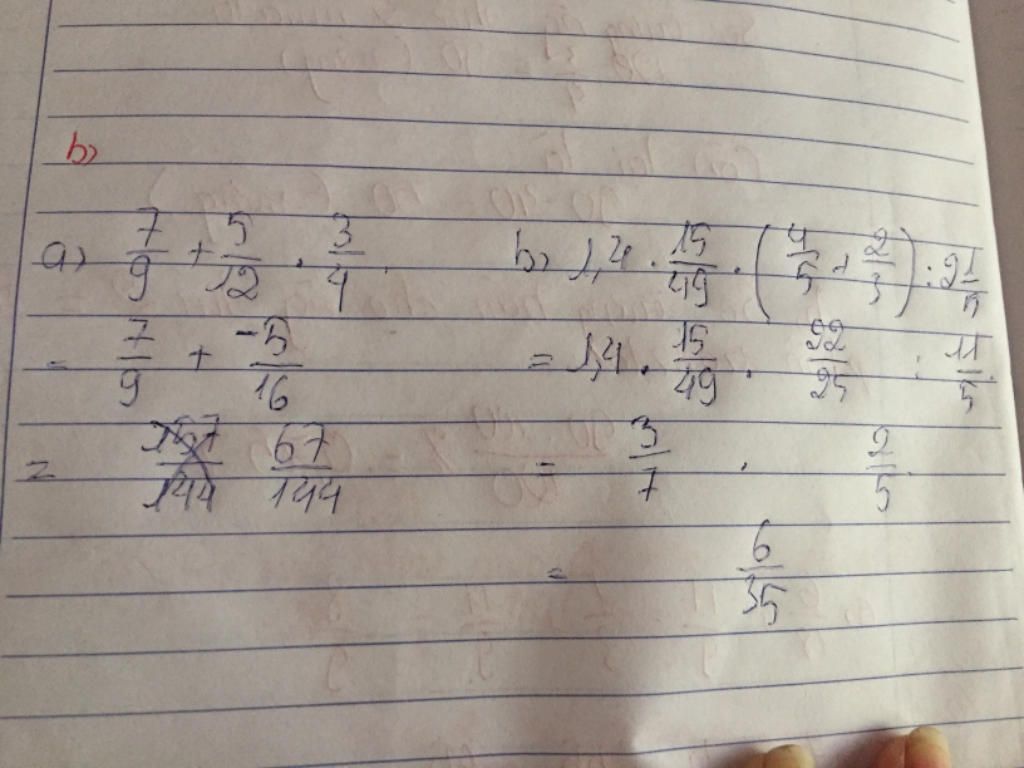 b)
a) 7/9 + 5/12 . 3/4
= 7/9 + -5/16
= 67/144
b) 1,4 . 15/49 . (4/5 + 2/3) : 2 1/5
= 1,4 . 15/49 . 22/25 : 11/5
= 3/7 . 2/5
= 6/35